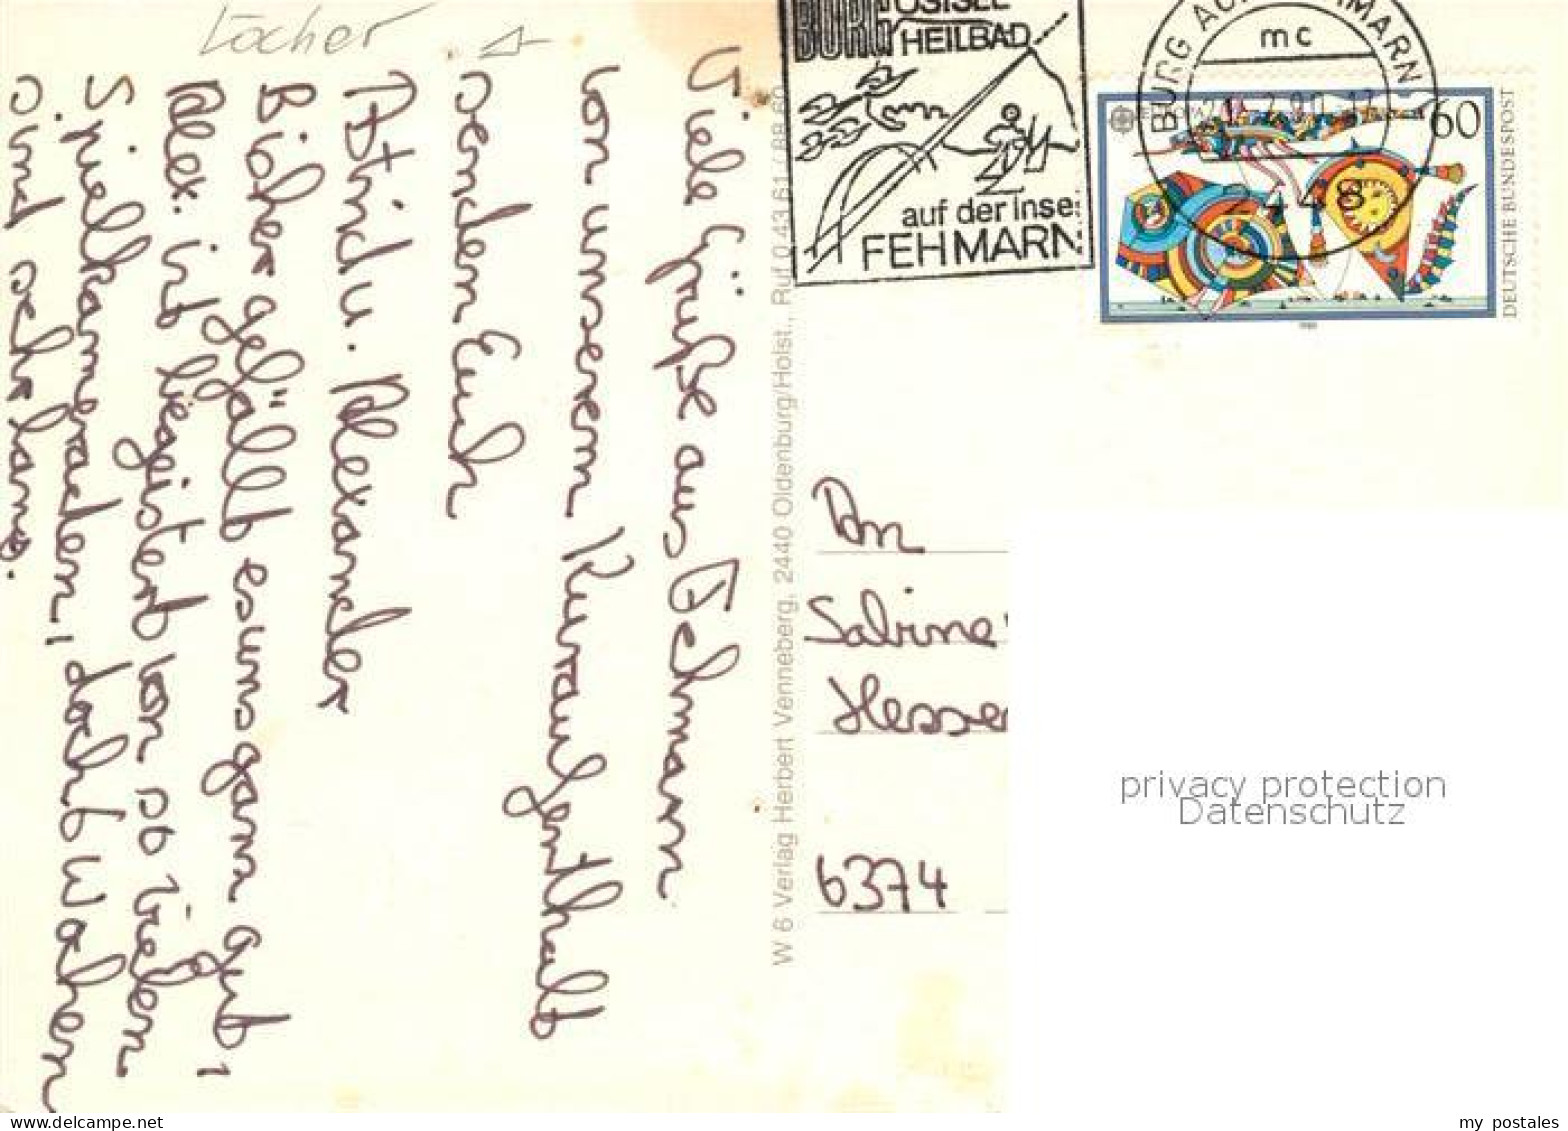 Löcher
Viele Grüße aus Fehmarn
von unserem Kuraufenthalt
senden Euch
Astrid u. Alexander
Bisher gefällt es uns ganz gut,
Alex. ist begeistert von so vielen
Spielkameraden, doch Wochen
sind sehr lang.
W 6 Verlag Herbert Venneberg, 2440 Oldenburg/Holst., Ruf 0 43 61 / 88 60
BURG OSTSEE
HEILBAD
auf der Insel
FEHMARN
BURG AUF FEHMARN
mc
2448
60
DEUTSCHE BUNDESPOST
An
Sabine
Hessen
6374
privacy protection
Datenschutz
my postales